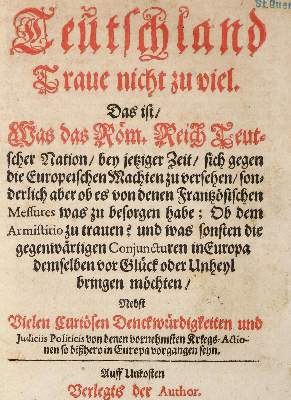 St. Quer
Teutschland
Traue nicht zu viel.
Das ist/
Was das Röm. Reich Teut-
scher Nation/ bey jetziger Zeit/ sich gegen
die Europeischen Machten zu versehen/ son-
derlich aber ob es von denen Frantzösischen
Messures was zu besorgen habe; Ob dem
Armistitio zu trauen? und was sonsten die
gegenwärtigen Conjuncturen in Europa
demselben vor Glück oder Unheyl
bringen möchten/
Nebst
Vielen Curiösen Denckwürdigkeiten und
Judiciis Politicis von denen vornehmsten Kriegs-Actio-
nen so bißhero in Europa vorgangen seyn.
Auff Unkosten
Verlegts der Author.